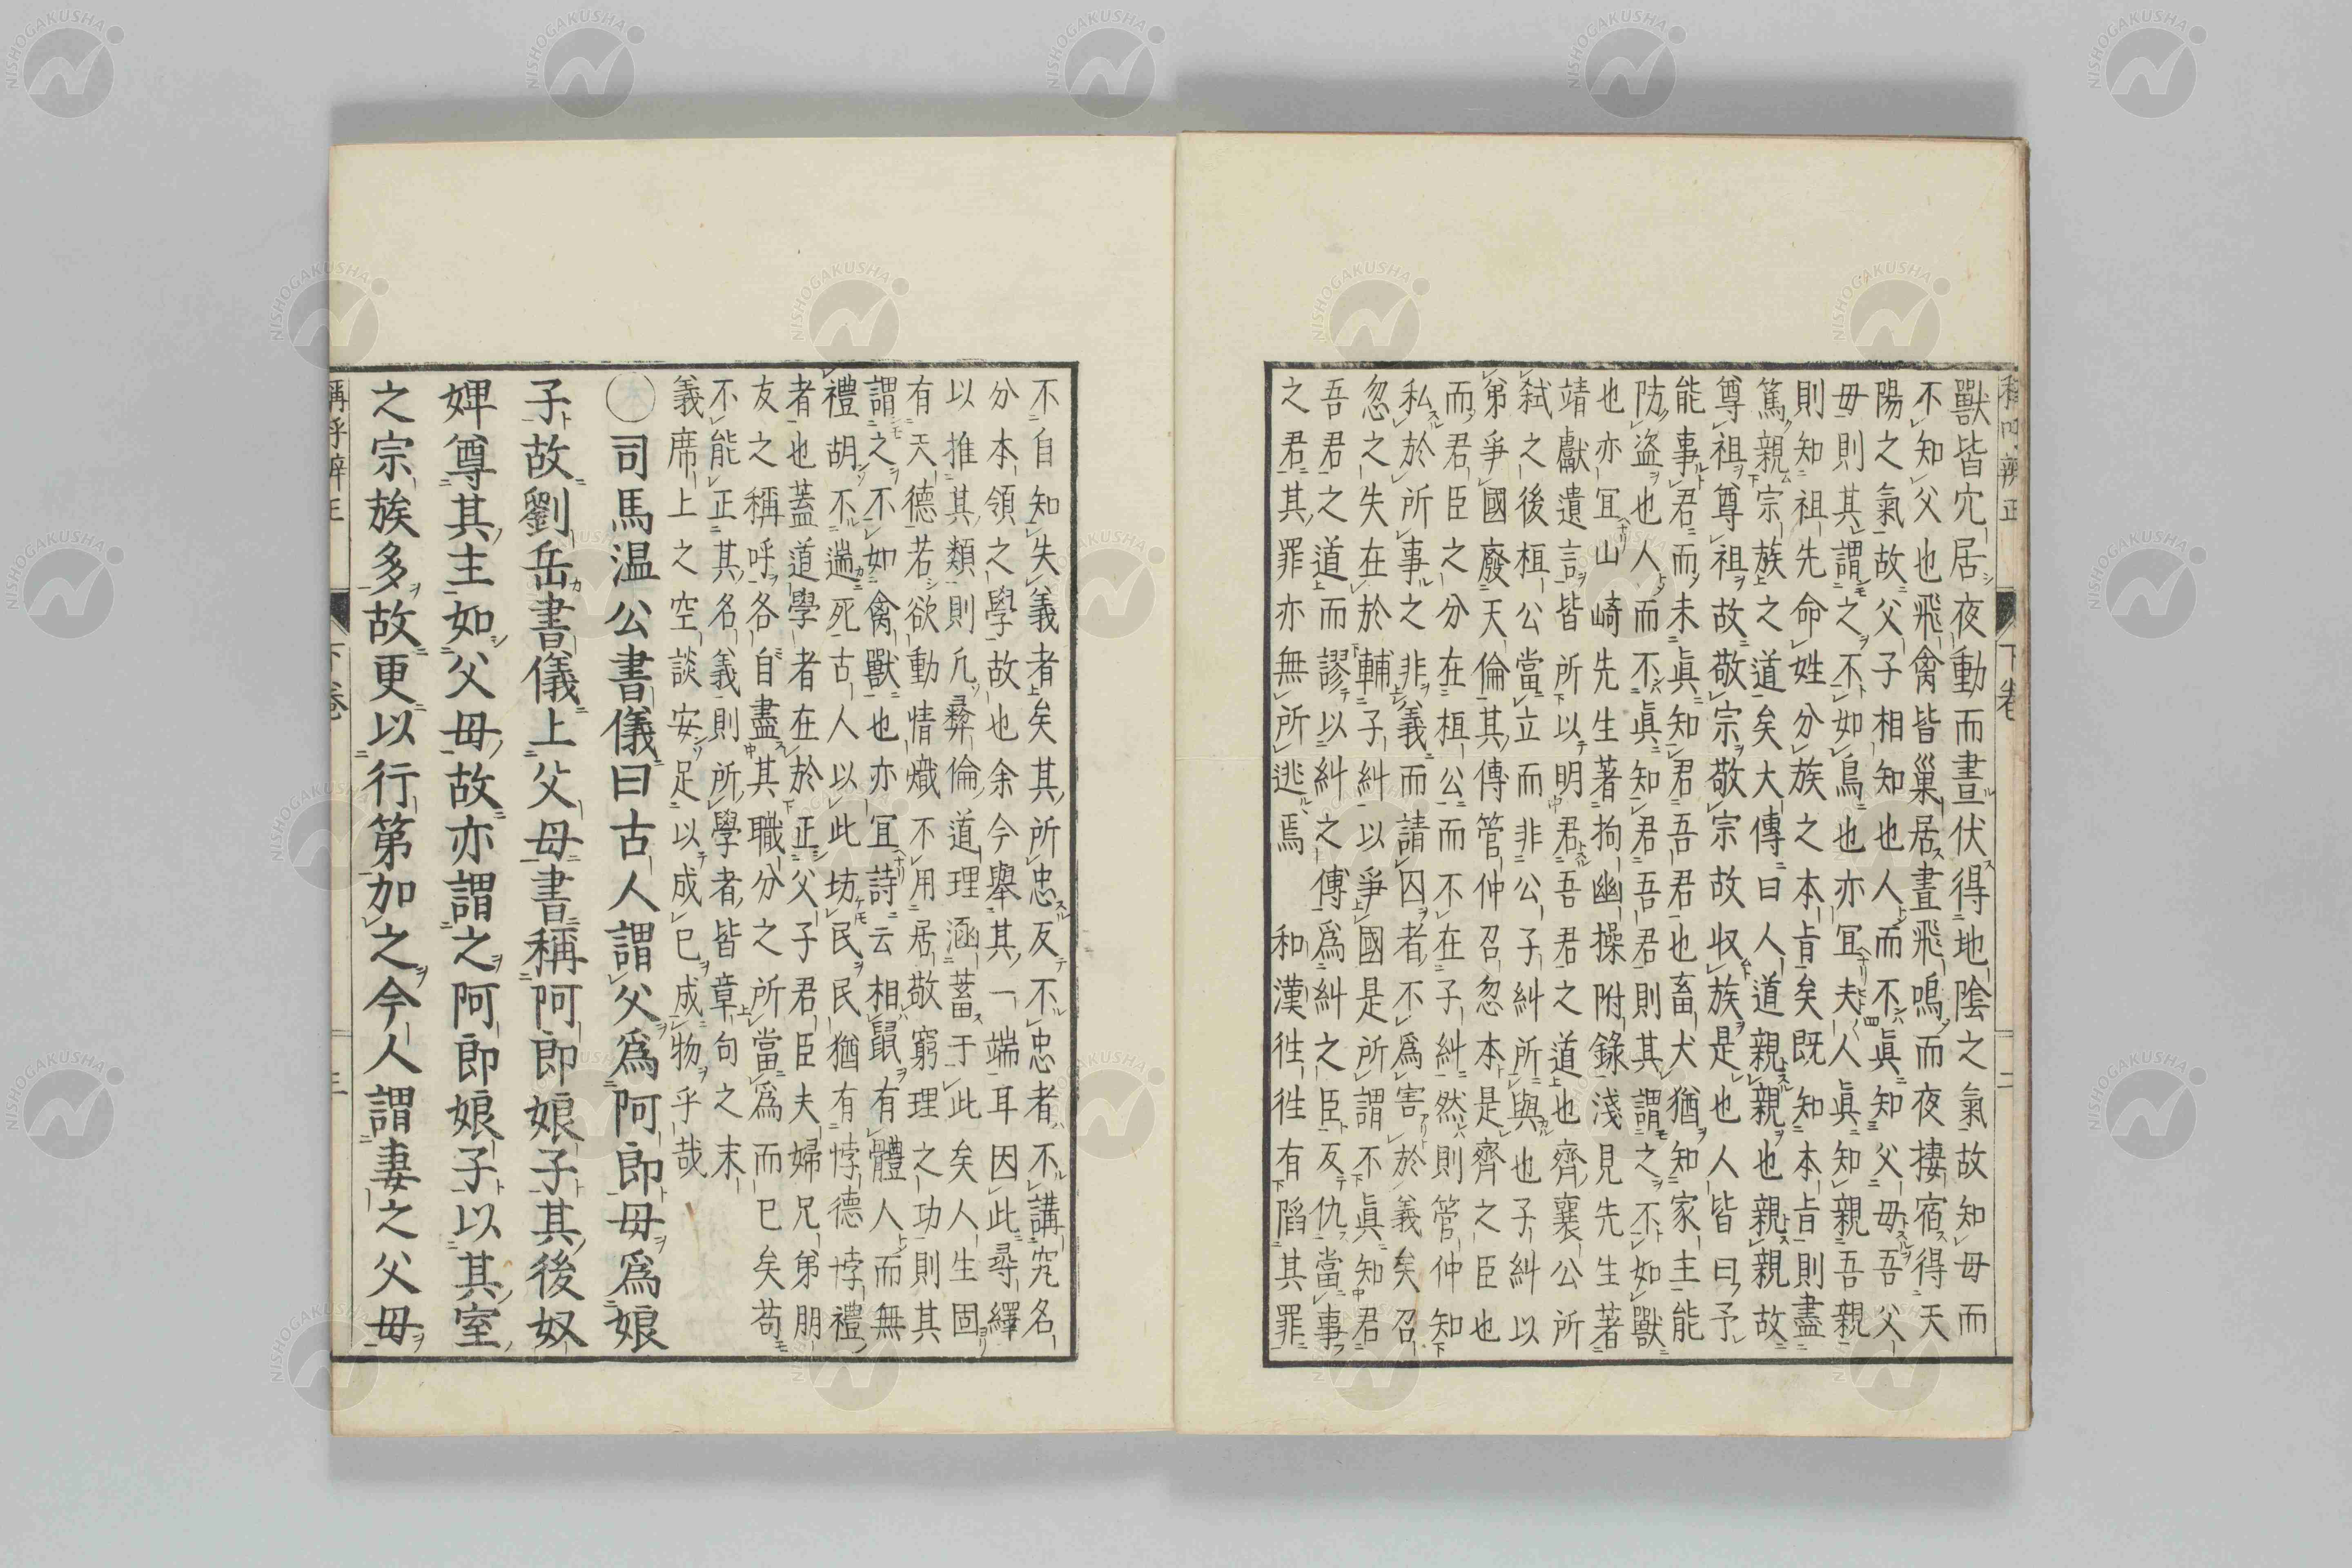 獸皆穴居夜動而晝伏得地陰之氣故知母而
不知父也飛禽皆巢居晝飛鳴而夜捿宿得天
陽之氣故父子相知也人而不眞知父母吾父
母則其謂之不如鳥也亦宜夫人眞知親吾親
則知祖先命姓分族之本旨矣既知本旨則盡
篤親宗族之道矣大傳曰人道親親也親親故
尊祖尊祖故敬宗敬宗故收族是也人皆曰予
能事君而未眞知君吾君也畜犬猶知家主能
防盗也人而不眞知君吾君則其謂之不如獸
也亦宜山崎先生著拘幽操附錄淺見先生著
靖獻遺言皆所以明君吾君之道也齊襄公所
弑之後桓公當立而非公子糾所與也子糾以
弟爭國廢天倫其傳管仲召忽本是齊之臣也
而君臣之分在桓公而不在子糾然則管仲知
私於所事之非義而請囚者不爲害於義矣召
忽之失在於輔子糾以爭國是所謂不眞知君
吾君之道而謬以糾之傳爲糾之臣反仇當事
之君其罪亦無所逃焉　和漢徃徃有䧟其罪
不自知失義者矣其所忠反不忠者不講究名
分本領之學故也余今舉其一端耳因此尋繹
以推其類則凢彛倫道理涵蓄于此矣人生固
有天德若欲動情熾不用居敬窮理之功則其
謂之不如禽獸也亦宜詩云相鼠有體人而無
禮胡不遄死古人以此坊民民猶有悖德悖禮
者也蓋道學者在於正父子君臣夫婦兄弟朋
友之稱呼各自盡其職分之所當爲而已矣苟
不能正其名義則所學者皆章句之末
義席上之空談安足以成已成物乎哉
○司馬温公書儀曰古人謂父爲阿郎母爲娘
子故劉岳書儀上父母書稱阿郎娘子其後奴
婢尊其主如父母故亦謂之阿郎娘子以其室
之宗族多故更以行第加之今人謂妻之父母
稱呼辨正　下卷　二
稱呼辨正　下卷　三